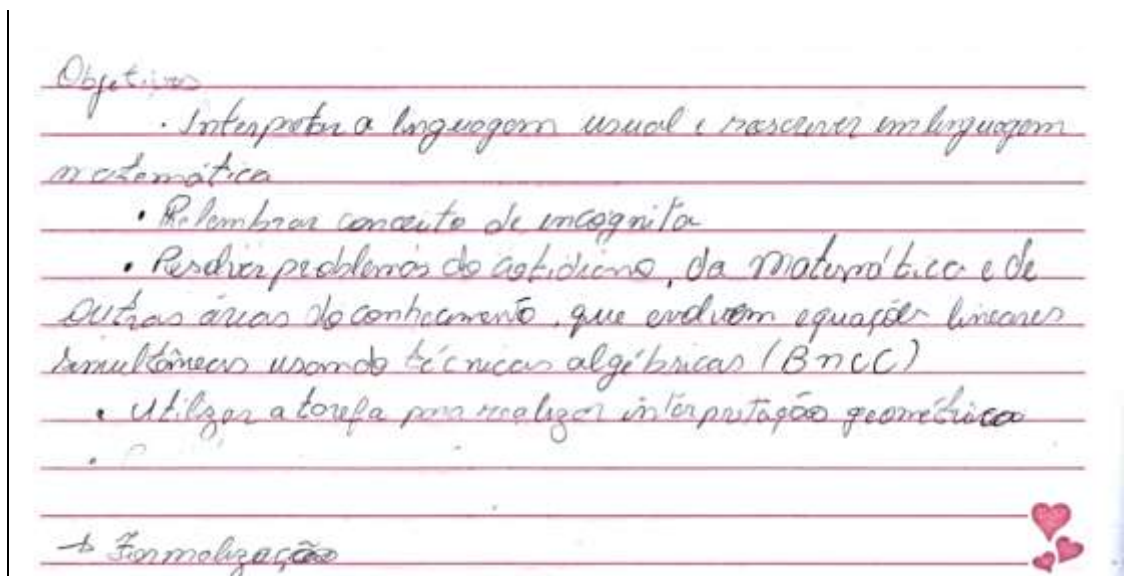 Objetivos
· Interpretar a linguagem usual e reescrever em linguagem
matemática
· Relembrar conceito de incógnita
· Resolver problemas do cotidiano, da matemática e de
outras áreas do conhecimento, que evolvem equações lineares
simultâneas usando técnicas algébricas (BNCC)
· Utilizar a tarefa para realizar interpretação geométrica
·
→ Formalização